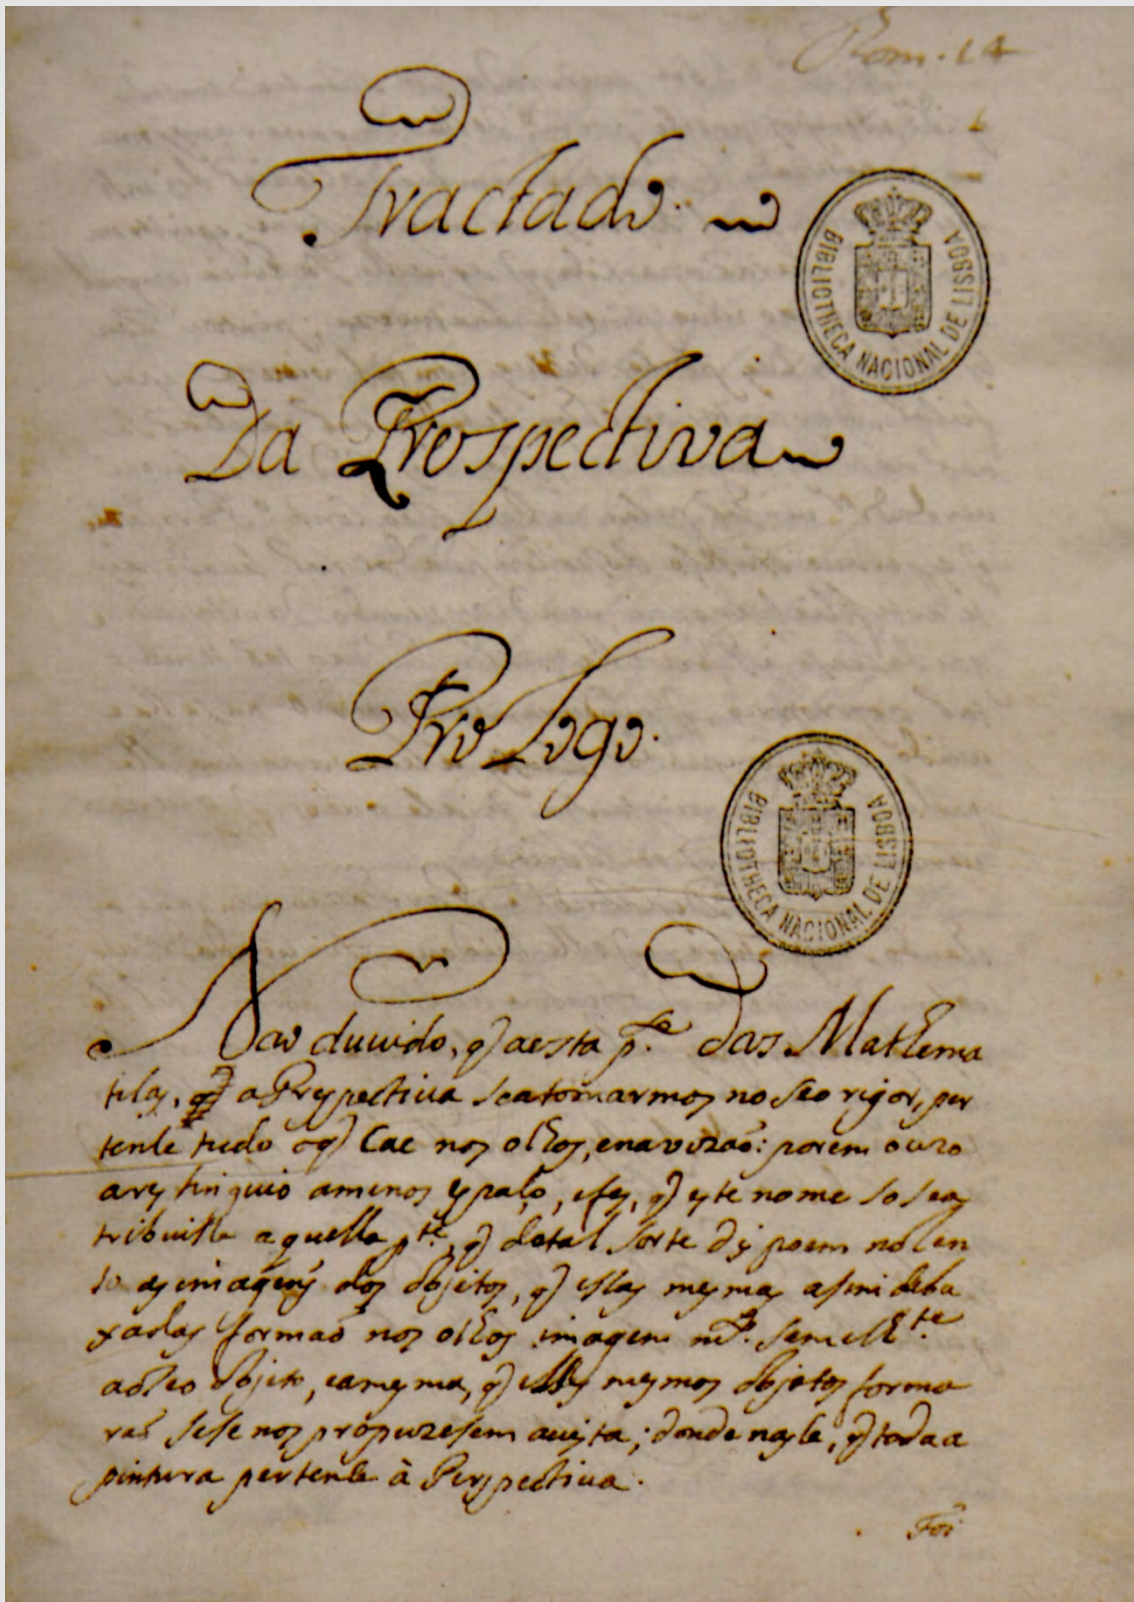 Rom. 14
Tractado.
BIBLIOTHECA NACIONAL DE LISBOA
Da Prospectiva
Prologo.
BIBLIOTHECA NACIONAL DE LISBOA
Naõ duuido, q̃ a esta p.te das Mathema
ticas, q̃ a Prespectiua se a tomarmos no seo rigor, per
tence tudo o q̃ cae nos olhos, e na vizaõ: porem o uzo
a restinguio a menos espaço, e fes, q̃ este nome so se a
tribuisse a quella p.te, q̃ de tal sorte dispoem no len
so as imagẽs dos objeitos, q̃ essas mesmas asim debu
xadas formaõ nos olhos imagem m.to semelh.te
ao seo objeito, e a mesma, q̃ esses mesmos objetos forma
raõ se se nos propuzesem a uista; donde nasce, q̃ toda a
pintura pertence à Perspectiua.
Foi